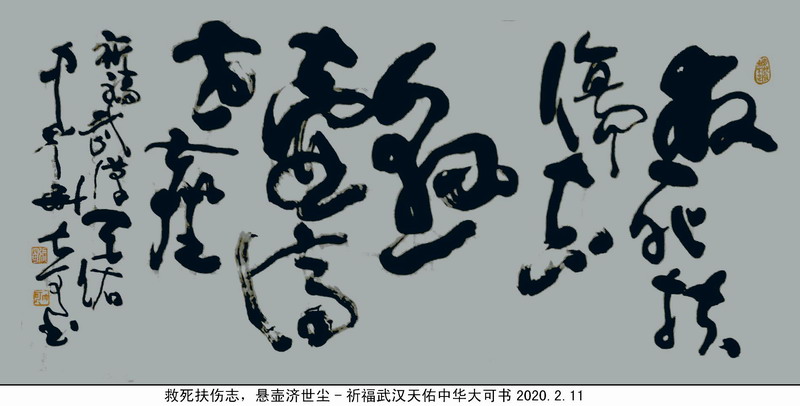 救死扶
傷志
懸
壺濟
世塵
祈福武漢天佑
中華大可书
救死扶伤志，悬壶济世尘－祈福武汉天佑中华大可书 2020.2.11